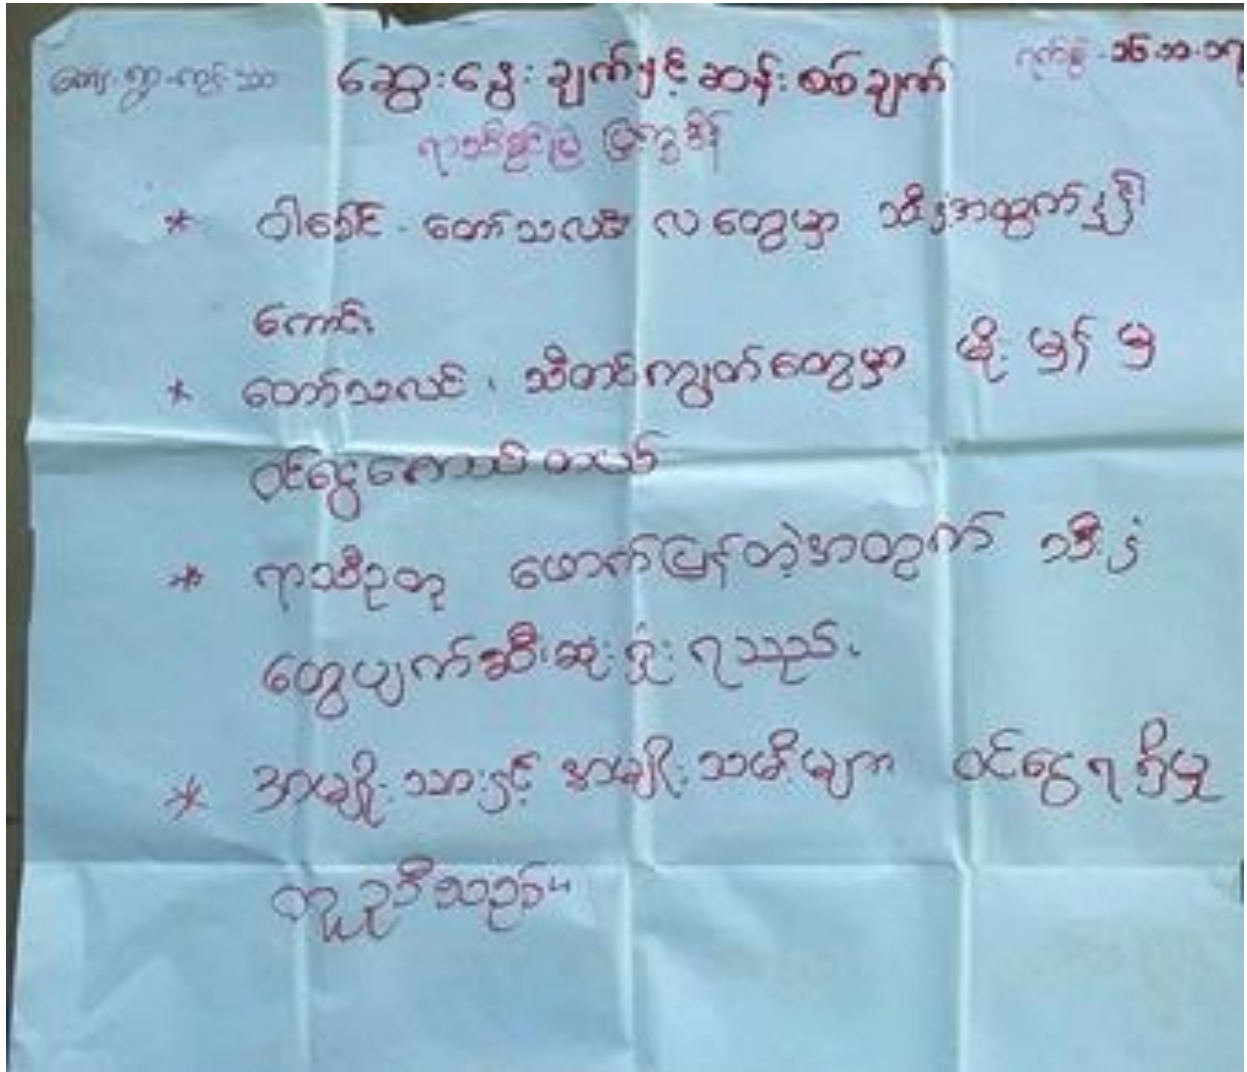 ကျေးရွာ-ကွင်းသာ ဆွေးနွေးချက်နှင့်ဆန်းစစ်ချက် ရက်စွဲ-၁၆-၁၁-၁၇
ရာသီခွင်ပြ ပြက္ခဒိန်
* ဝါခေါင် - တော်သလင်း လတွေမှာ သီးနှံအထွက်နှုန်း
ကောင်း၊
* တော်သလင်း ၊ သီတင်းကျွတ်တွေမှာ မိုးမှန်မှ
ဝင်ငွေကောင်းတယ်
* ရာသီဥတု ဖောက်ပြန်တဲ့အတွက် သီးနှံ
တွေပျက်ဆီးဆုံးရှုံးရသည်။
* အမျိုးသားနှင့် အမျိုးသမီးများ ဝင်ငွေရရှိမှု
တူညီသည်။